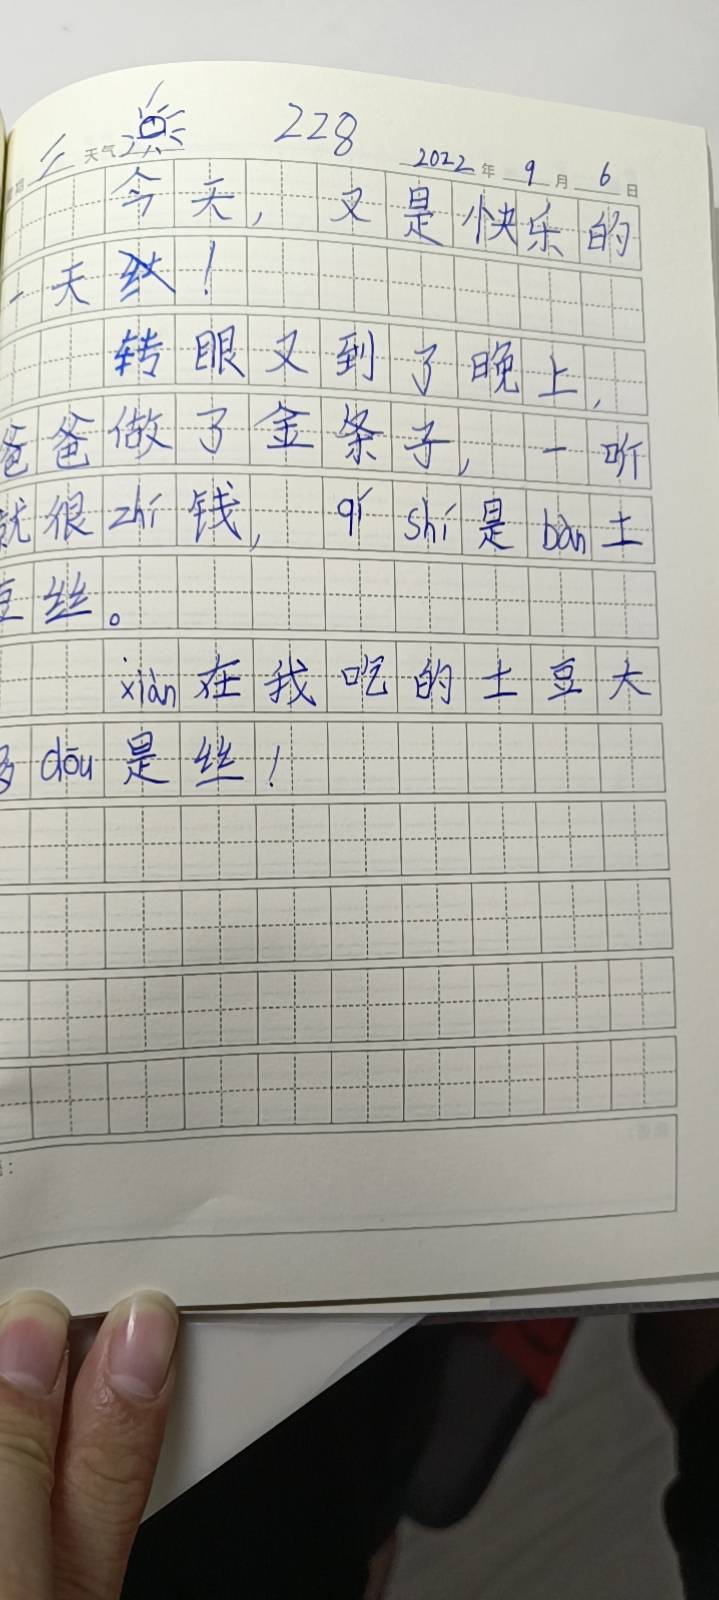 二 天气 228 2022年 9月 6日
今天，又是快乐的
一天！
转眼又到了晚上，
爸爸做了金条子，一听
就很zhí钱，qí shí是bàn土
豆丝。
xiàn在我吃的土豆大
多dōu是丝！